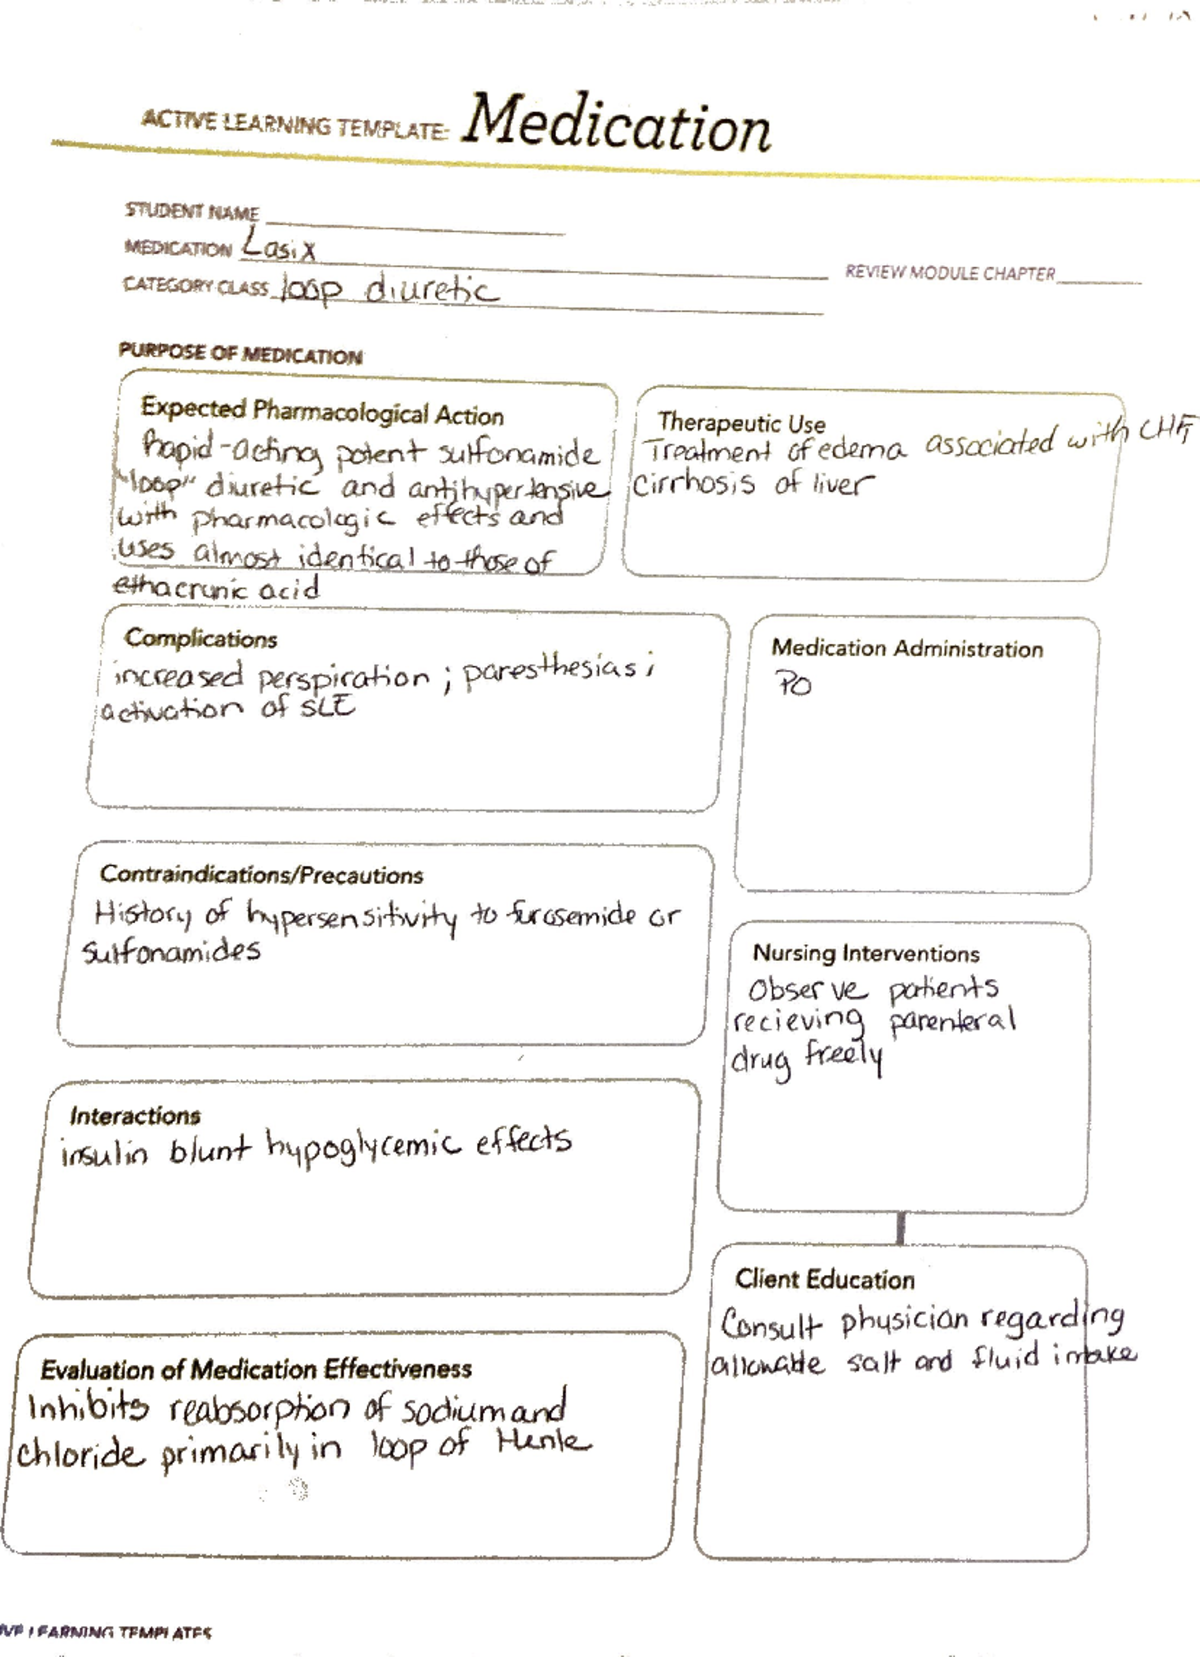 ACTIVE LEARNING TEMPLATE: Medication
STUDENT NAME
MEDICATION Lasix
REVIEW MODULE CHAPTER
CATEGORY CLASS loop diuretic
PURPOSE OF MEDICATION
Expected Pharmacological Action
Rapid-acting potent sulfonamide
"loop" diuretic and antihypertensive
with pharmacologic effects and
uses almost identical to those of
ethacrynic acid
Therapeutic Use
Treatment of edema associated with CHF,
cirrhosis of liver
Complications
increased perspiration; paresthesias;
activation of SLE
Medication Administration
PO
Contraindications/Precautions
History of hypersensitivity to furosemide or
sulfonamides
Nursing Interventions
Observe patients
recieving parenteral
drug freely
Interactions
insulin blunt hypoglycemic effects
Client Education
Consult physician regarding
allowable salt and fluid intake
Evaluation of Medication Effectiveness
Inhibits reabsorption of sodium and
chloride primarily in loop of Henle
IVE LEARNING TEMPLATES